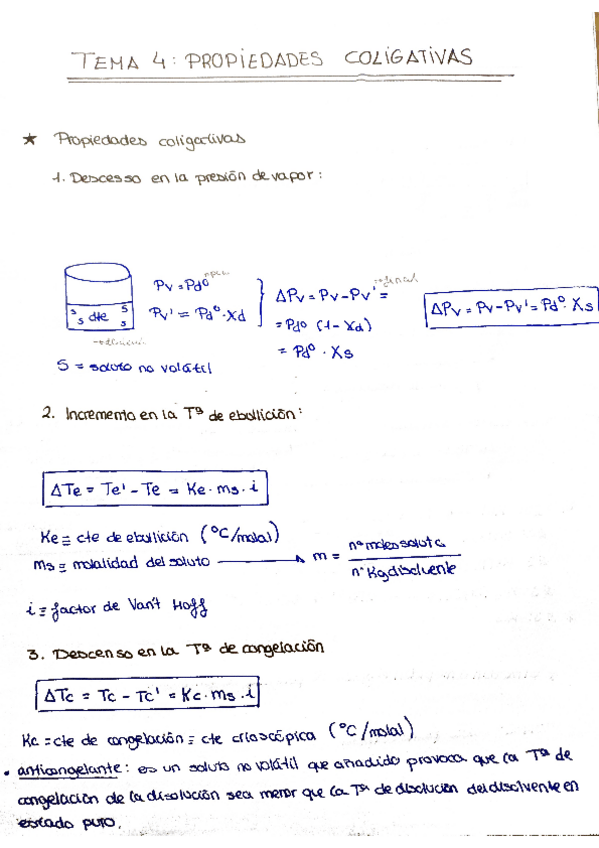 TEMA 4: PROPIEDADES COLIGATIVAS
★ Propiedades coligativas
1. Descesso en la presión de vapor:
Pv = Pd⁰
Pv' = Pd⁰·Xd
ΔPv = Pv - Pv' =
= Pd⁰ (1 - Xd)
= Pd⁰ · Xs
ΔPv = Pv - Pv' = Pd⁰ · Xs
s s dte s s
S = soluto no volátil
2. Incremento en la Tª de ebullición:
ΔTe = Te' - Te = Ke · ms · i
Ke ≡ cte de ebullición (°C/molal)
ms ≡ molalidad del soluto → m = nº moles soluto / nº Kg disolvente
i ≡ factor de Van't Hoff
3. Descenso en la Tª de congelación
ΔTc = Tc - Tc' = Kc · ms · i
Kc = cte de congelación = cte crioscópica (°C/molal)
• anticongelante: es un soluto no volátil que añadido provoca que la Tª de
congelación de la disolución sea menor que la Tª de disolución del disolvente en
estado puro.